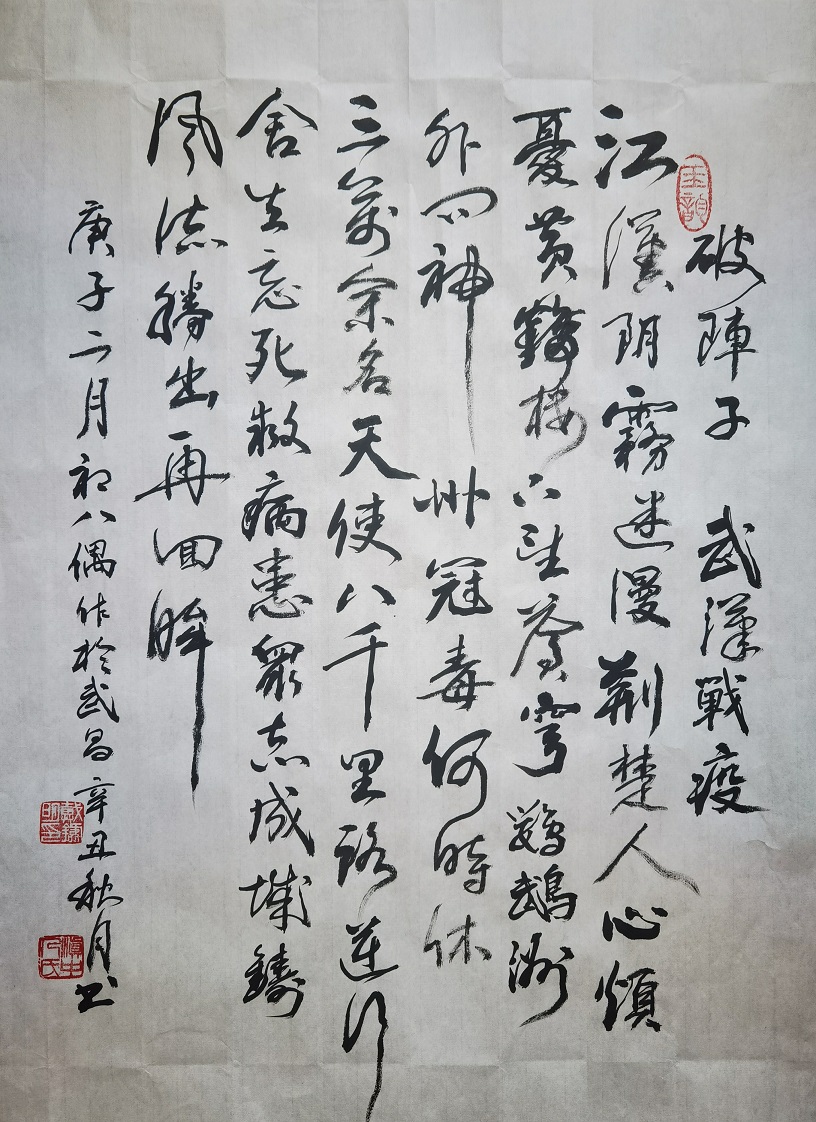 破陣子 武漢戰疫
江漢阴霧迷漫荆楚人心煩
憂黄鶴楼上望蒼穹鸚鵡洲
外问神州冠毒何時休
三萬余名天使八千里路逆行
舍生忘死救病患眾志成城鑄
風流勝出再回眸
庚子二月初八偶作於武昌 辛丑秋月书